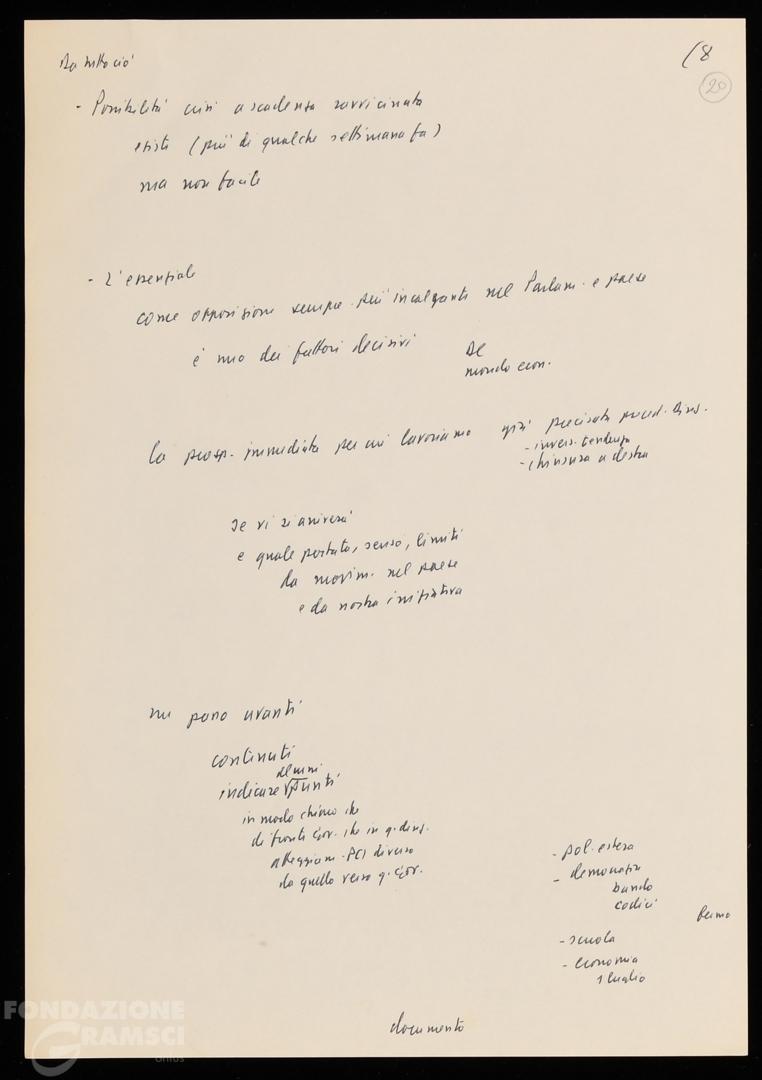 Da tutto ciò
(8
20
- Possibilità crisi a scadenza ravvicinata
esiste (più di qualche settimana fa)
ma non facile
- L'essenziale
come opposizione sempre più incalzante nel Parlam. e paese
è uno dei fattori decisivi
DC
mondo econ.
la prosp. immediata per cui lavoriamo già precisata preced. Direz.
- invers. tendenza
- chiusura a destra
Se vi si arriverà
e quale portata, senso, limiti
da movim. nel paese
e da nostra iniziativa
un passo avanti
contenuti
alcuni
indicare punti
in modo chiaro che
di fronte gov. che in q. direz.
atteggiam. PCI diverso
da quello verso q. gov.
- pol. estera
- democrazia
bando
codici
fermo
- scuola
- economia
1 luglio
documento
FONDAZIONE
GRAMSCI
onlus